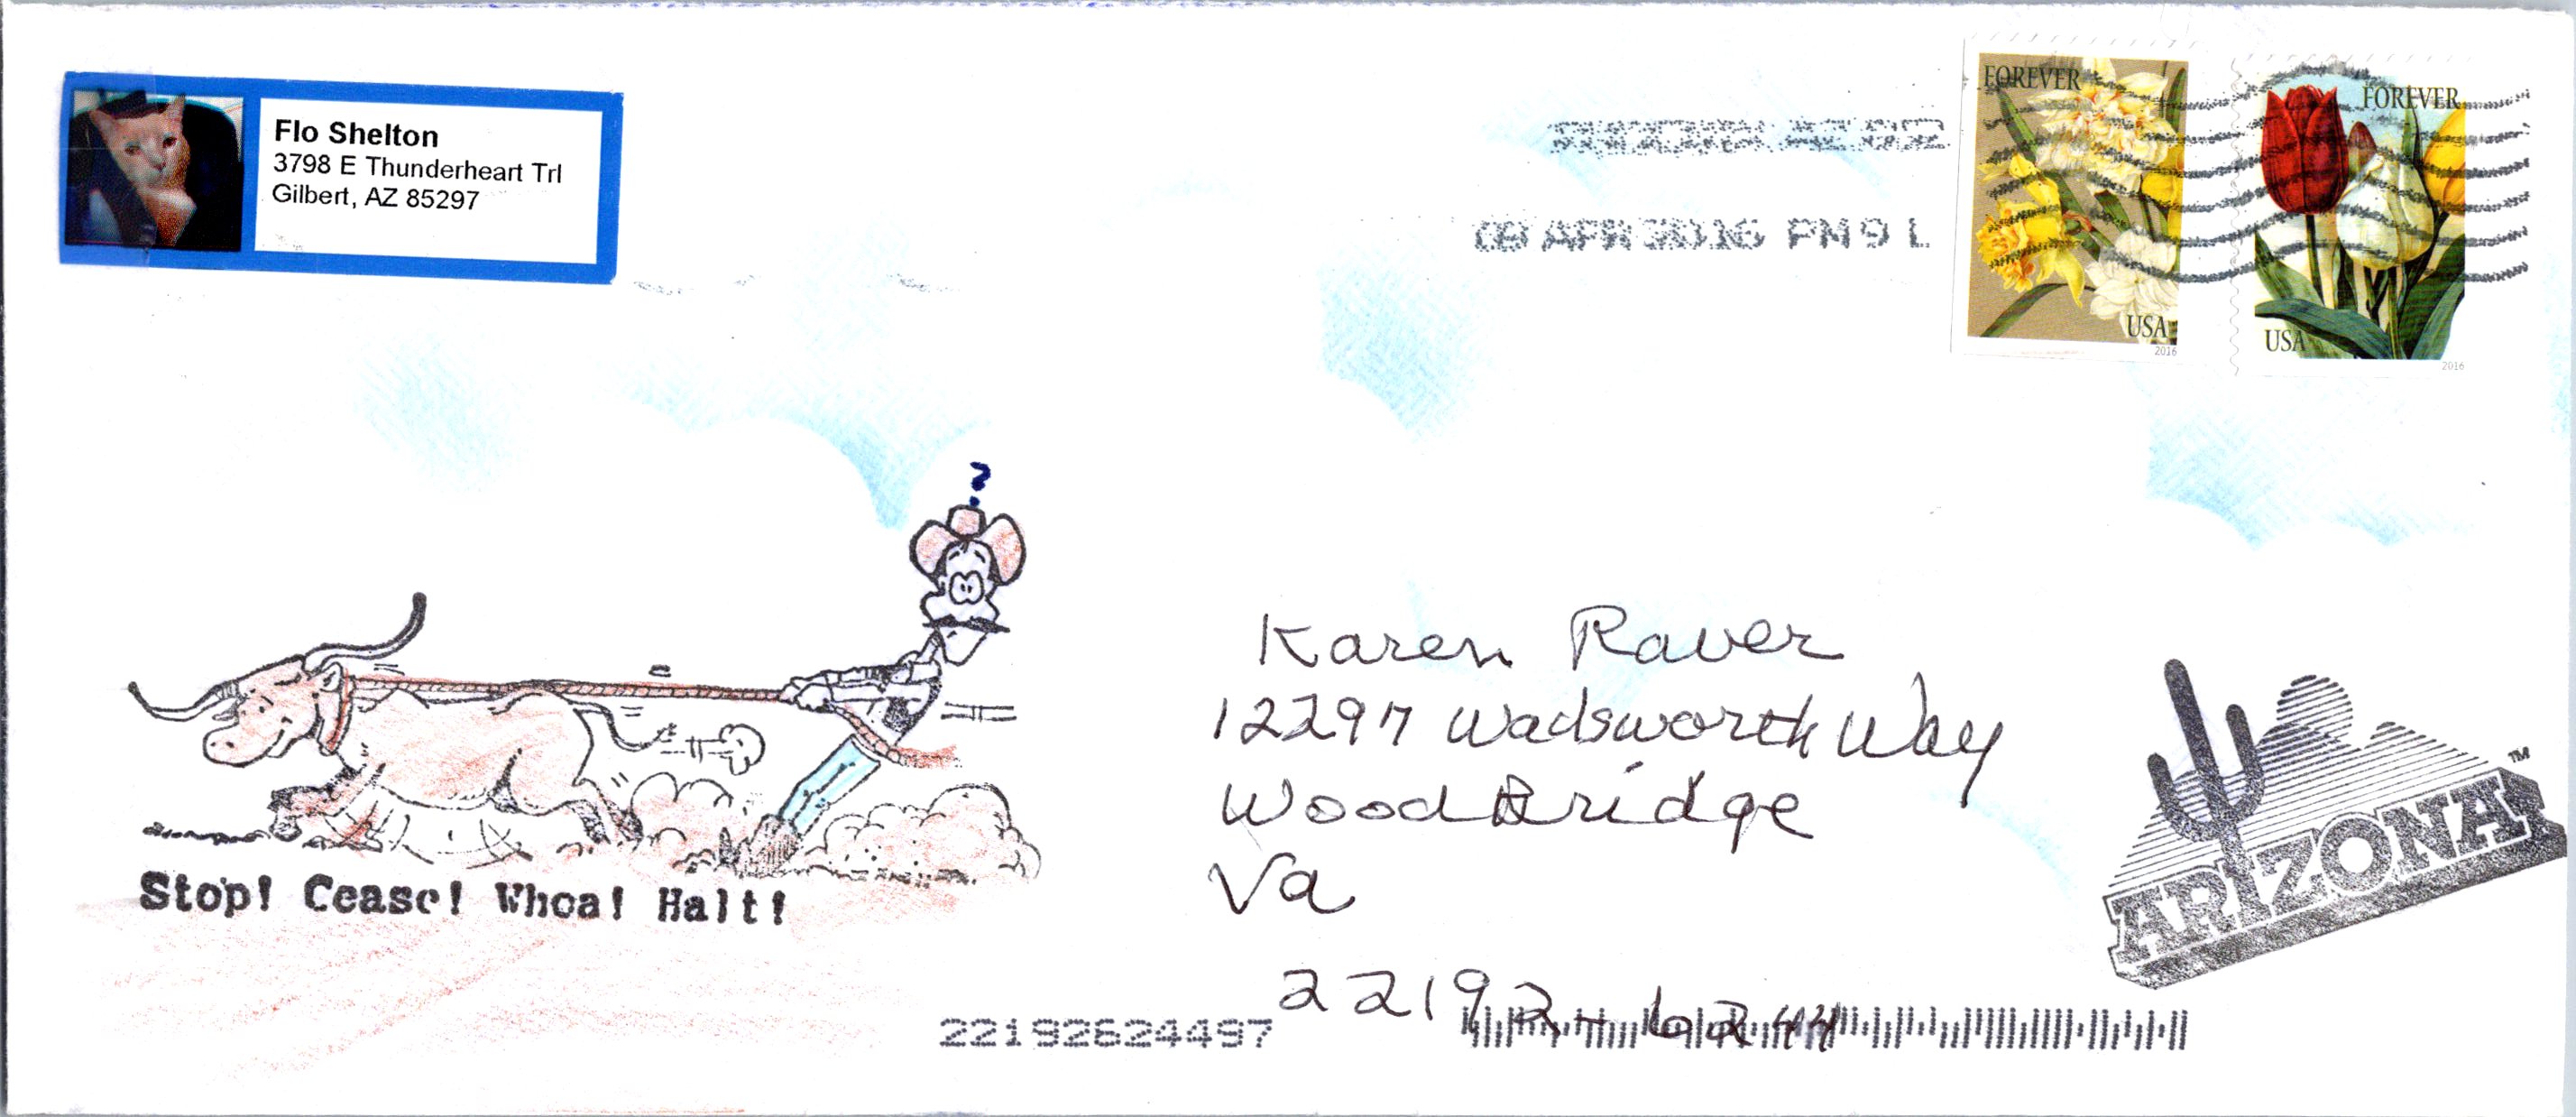 Flo Shelton
3798 E Thunderheart Trl
Gilbert, AZ 85297
AZ
APR 2016 PM 9 L
FOREVER
USA
2016
FOREVER
USA
2016
?
Stop! Cease! Whoa! Halt!
Karen Raver
12297 Wadsworth Way
WoodBridge
Va
22192-6244
ARIZONA
TM
22192624497